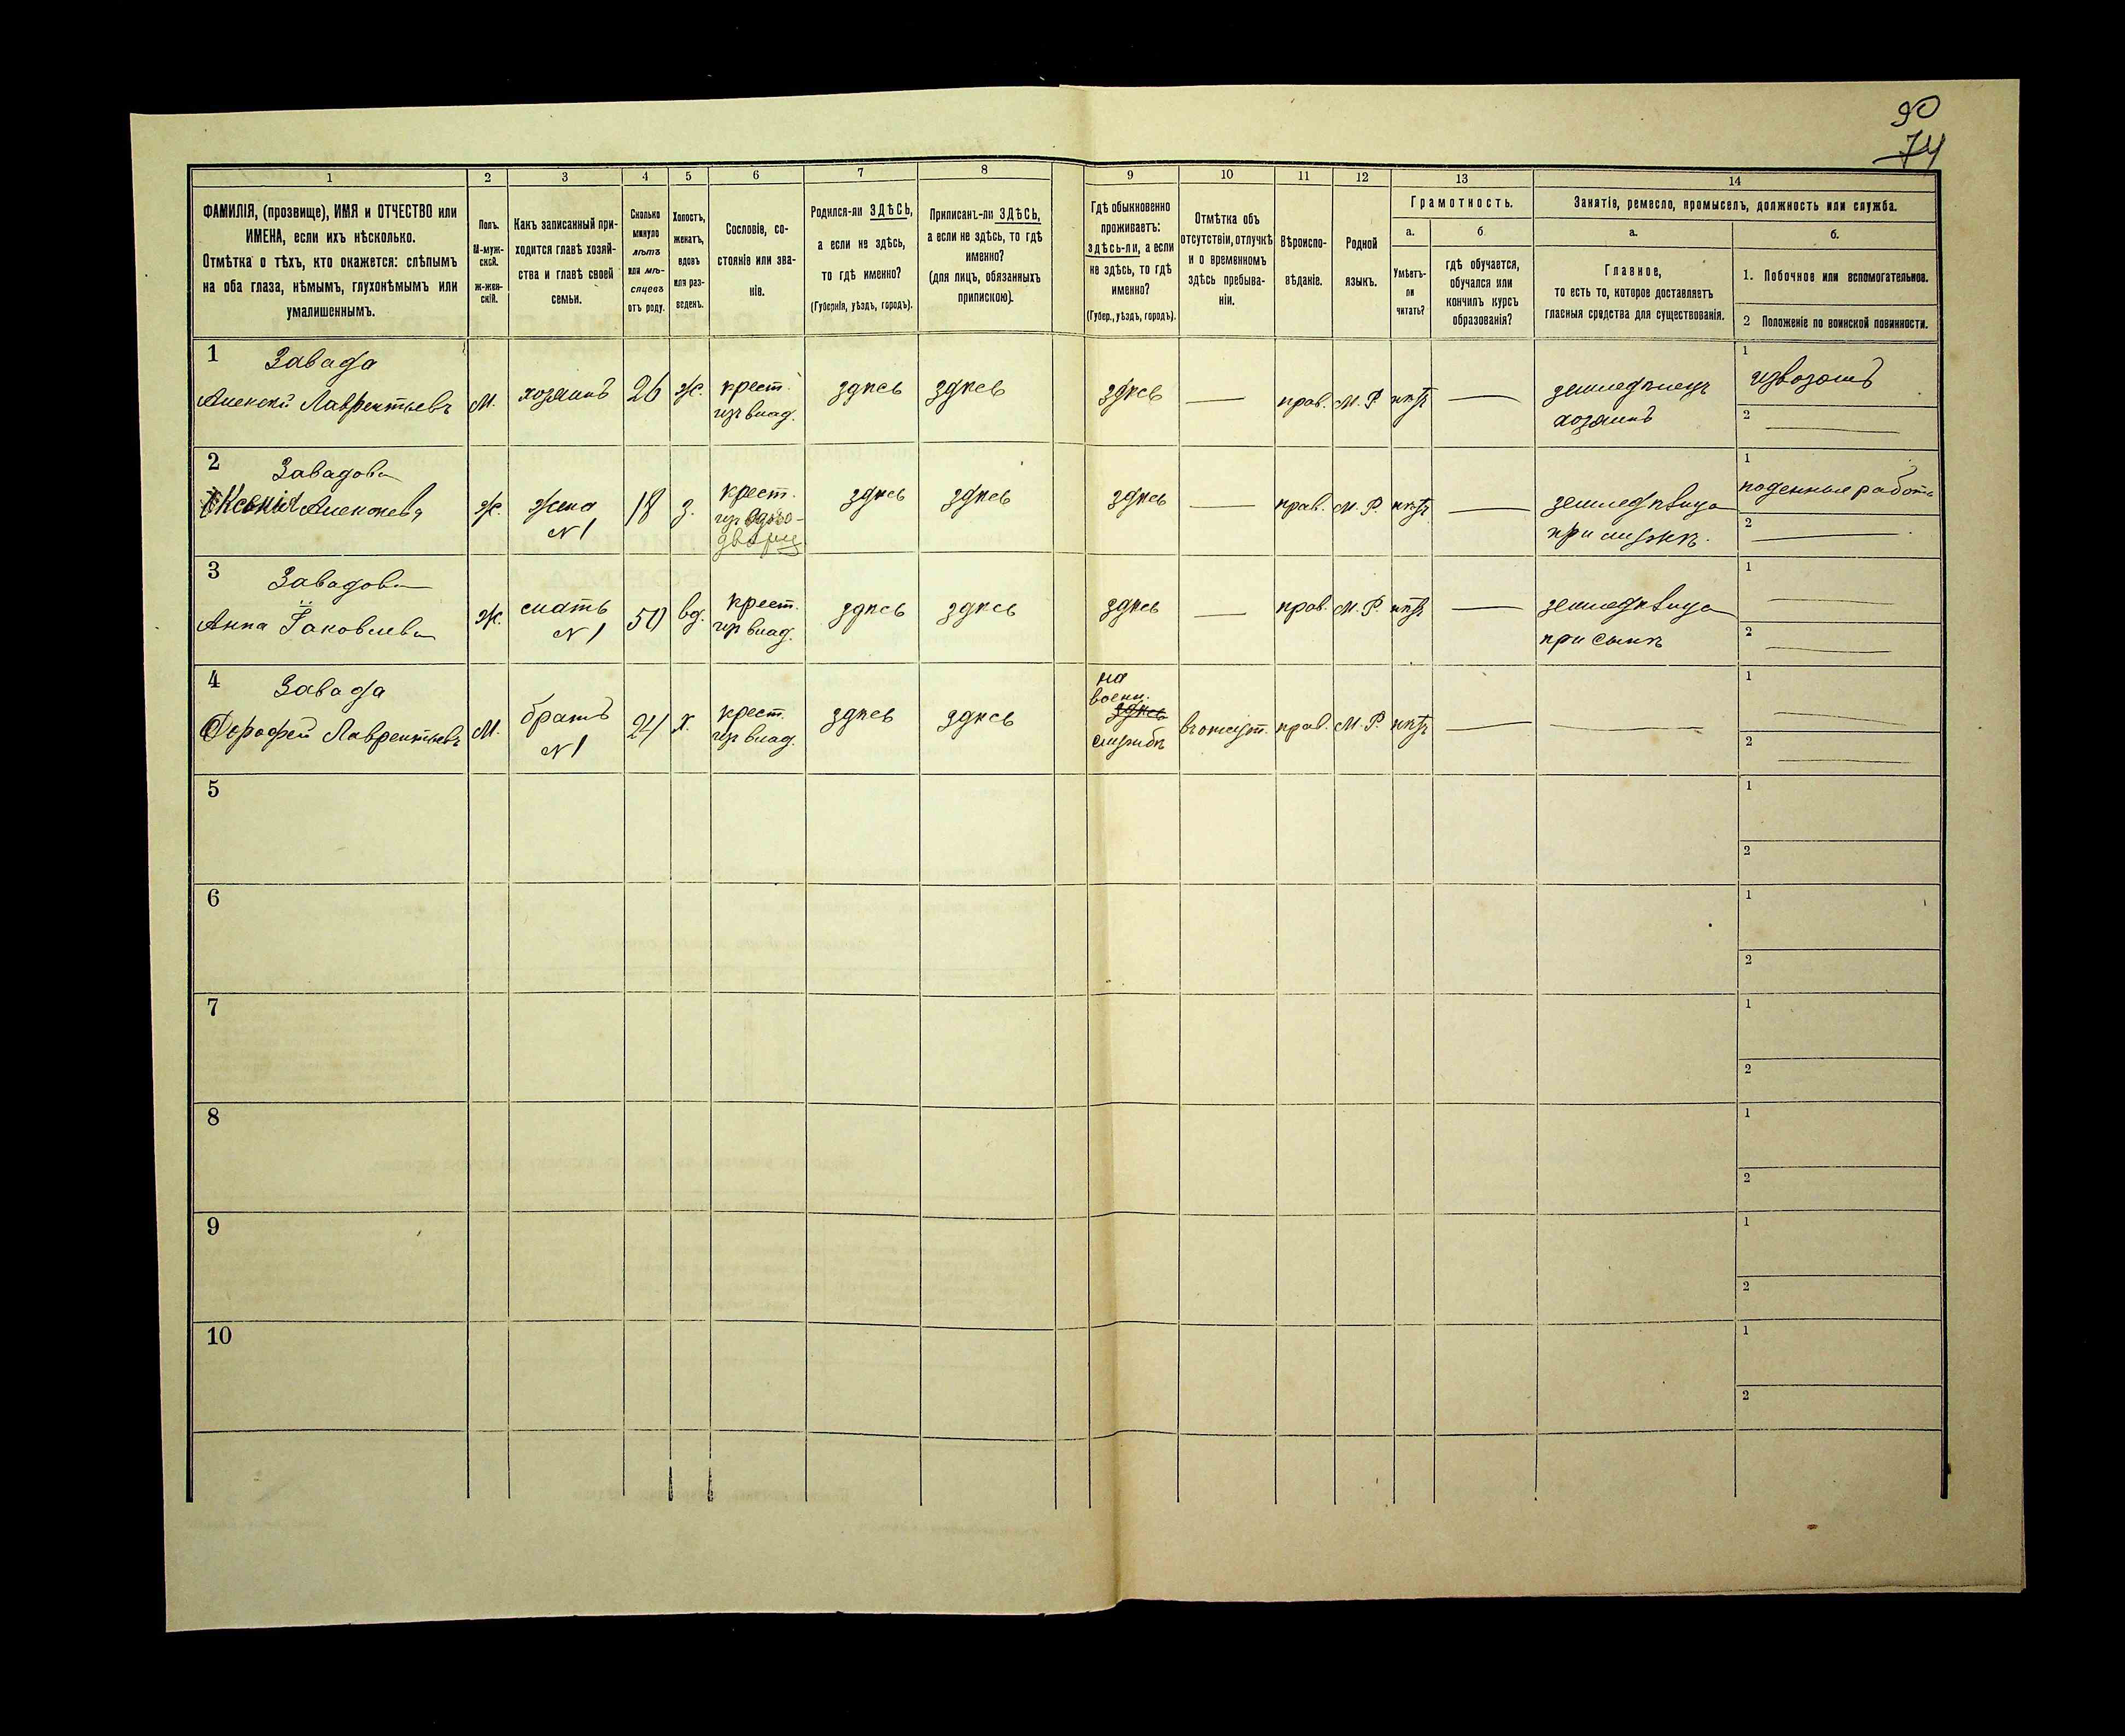 90
74
1
2
3
4
5
6
7
8
9
10
11
12
13
14
ФАМИЛІЯ, (прозвище), ИМЯ и ОТЧЕСТВО или
ИМЕНА, если ихъ нѣсколько.
Отмѣтка о тѣхъ, кто окажется: слѣпымъ
на оба глаза, нѣмымъ, глухонѣмымъ или
умалишеннымъ.
Полъ.
М-муж-
ской.
ж-жен-
скій.
Какъ записанный при-
ходится главѣ хозяй-
ства и главѣ своей
семьи.
Сколько
минуло
лѣтъ
или мѣ-
сяцевъ
отъ роду.
Холостъ,
женатъ,
вдовъ
или раз-
веденъ.
Сословіе, со-
стояніе или зва-
ніе.
Родился-ли ЗДѢСЬ,
а если не здѣсь,
то гдѣ именно?
(Губернія, уѣздъ, городъ).
Приписанъ-ли ЗДѢСЬ,
а если не здѣсь, то гдѣ
именно?
(для лицъ, обязанныхъ
припискою).
Гдѣ обыкновенно
проживаетъ:
здѣсь-ли, а если
не здѣсь, то гдѣ
именно?
(Губер., уѣздъ, городъ).
Отмѣтка объ
отсутствіи, отлучкѣ
и о временномъ
здѣсь пребыва-
ніи.
Вѣроиспо-
вѣданіе.
Родной
языкъ.
Грамотность.
а.
Умѣетъ-
ли
читать?
б.
гдѣ обучается,
обучался или
кончилъ курсъ
образованія?
Занятія, ремесло, промыселъ, должность или служба.
а.
Главное,
то есть то, которое доставляетъ
главныя средства для существованія.
б.
1. Побочное или вспомогательное.
2 Положеніе по воинской повинности.
1 Завада
Алексѣй Лаврентьевъ
М.
хозяинъ
26
ж.
крест.
изъ влад.
здѣсь
здѣсь
здѣсь
—
прав.
М. Р.
нѣтъ
—
земледѣлецъ
хозяинъ
1 извозомъ
2 —
2 Завадова
Ксенія Алексѣева
ж.
жена
N 1
18
з.
крест.
изъ одно-
дворц.
здѣсь
здѣсь
здѣсь
—
прав.
М. Р.
нѣтъ
—
земледѣлица
при мужѣ.
1 поденные работы
2 —
3 Завадова
Анна Яковлева
ж.
мать
N 1
50
вд.
крест.
изъ влад.
здѣсь
здѣсь
здѣсь
—
прав.
М. Р.
нѣтъ
—
земледѣлица
при сынѣ
1 —
2 —
4 Завада
Дорофей Лаврентьевъ
М.
братъ
N 1
24
х.
крест.
изъ влад.
здѣсь
здѣсь
на
воен.
здѣсь
службѣ
въ отсут.
прав.
М. Р.
нѣтъ
—
—
1 —
2 —
5
1
2
6
1
2
7
1
2
8
1
2
9
1
2
10
1
2